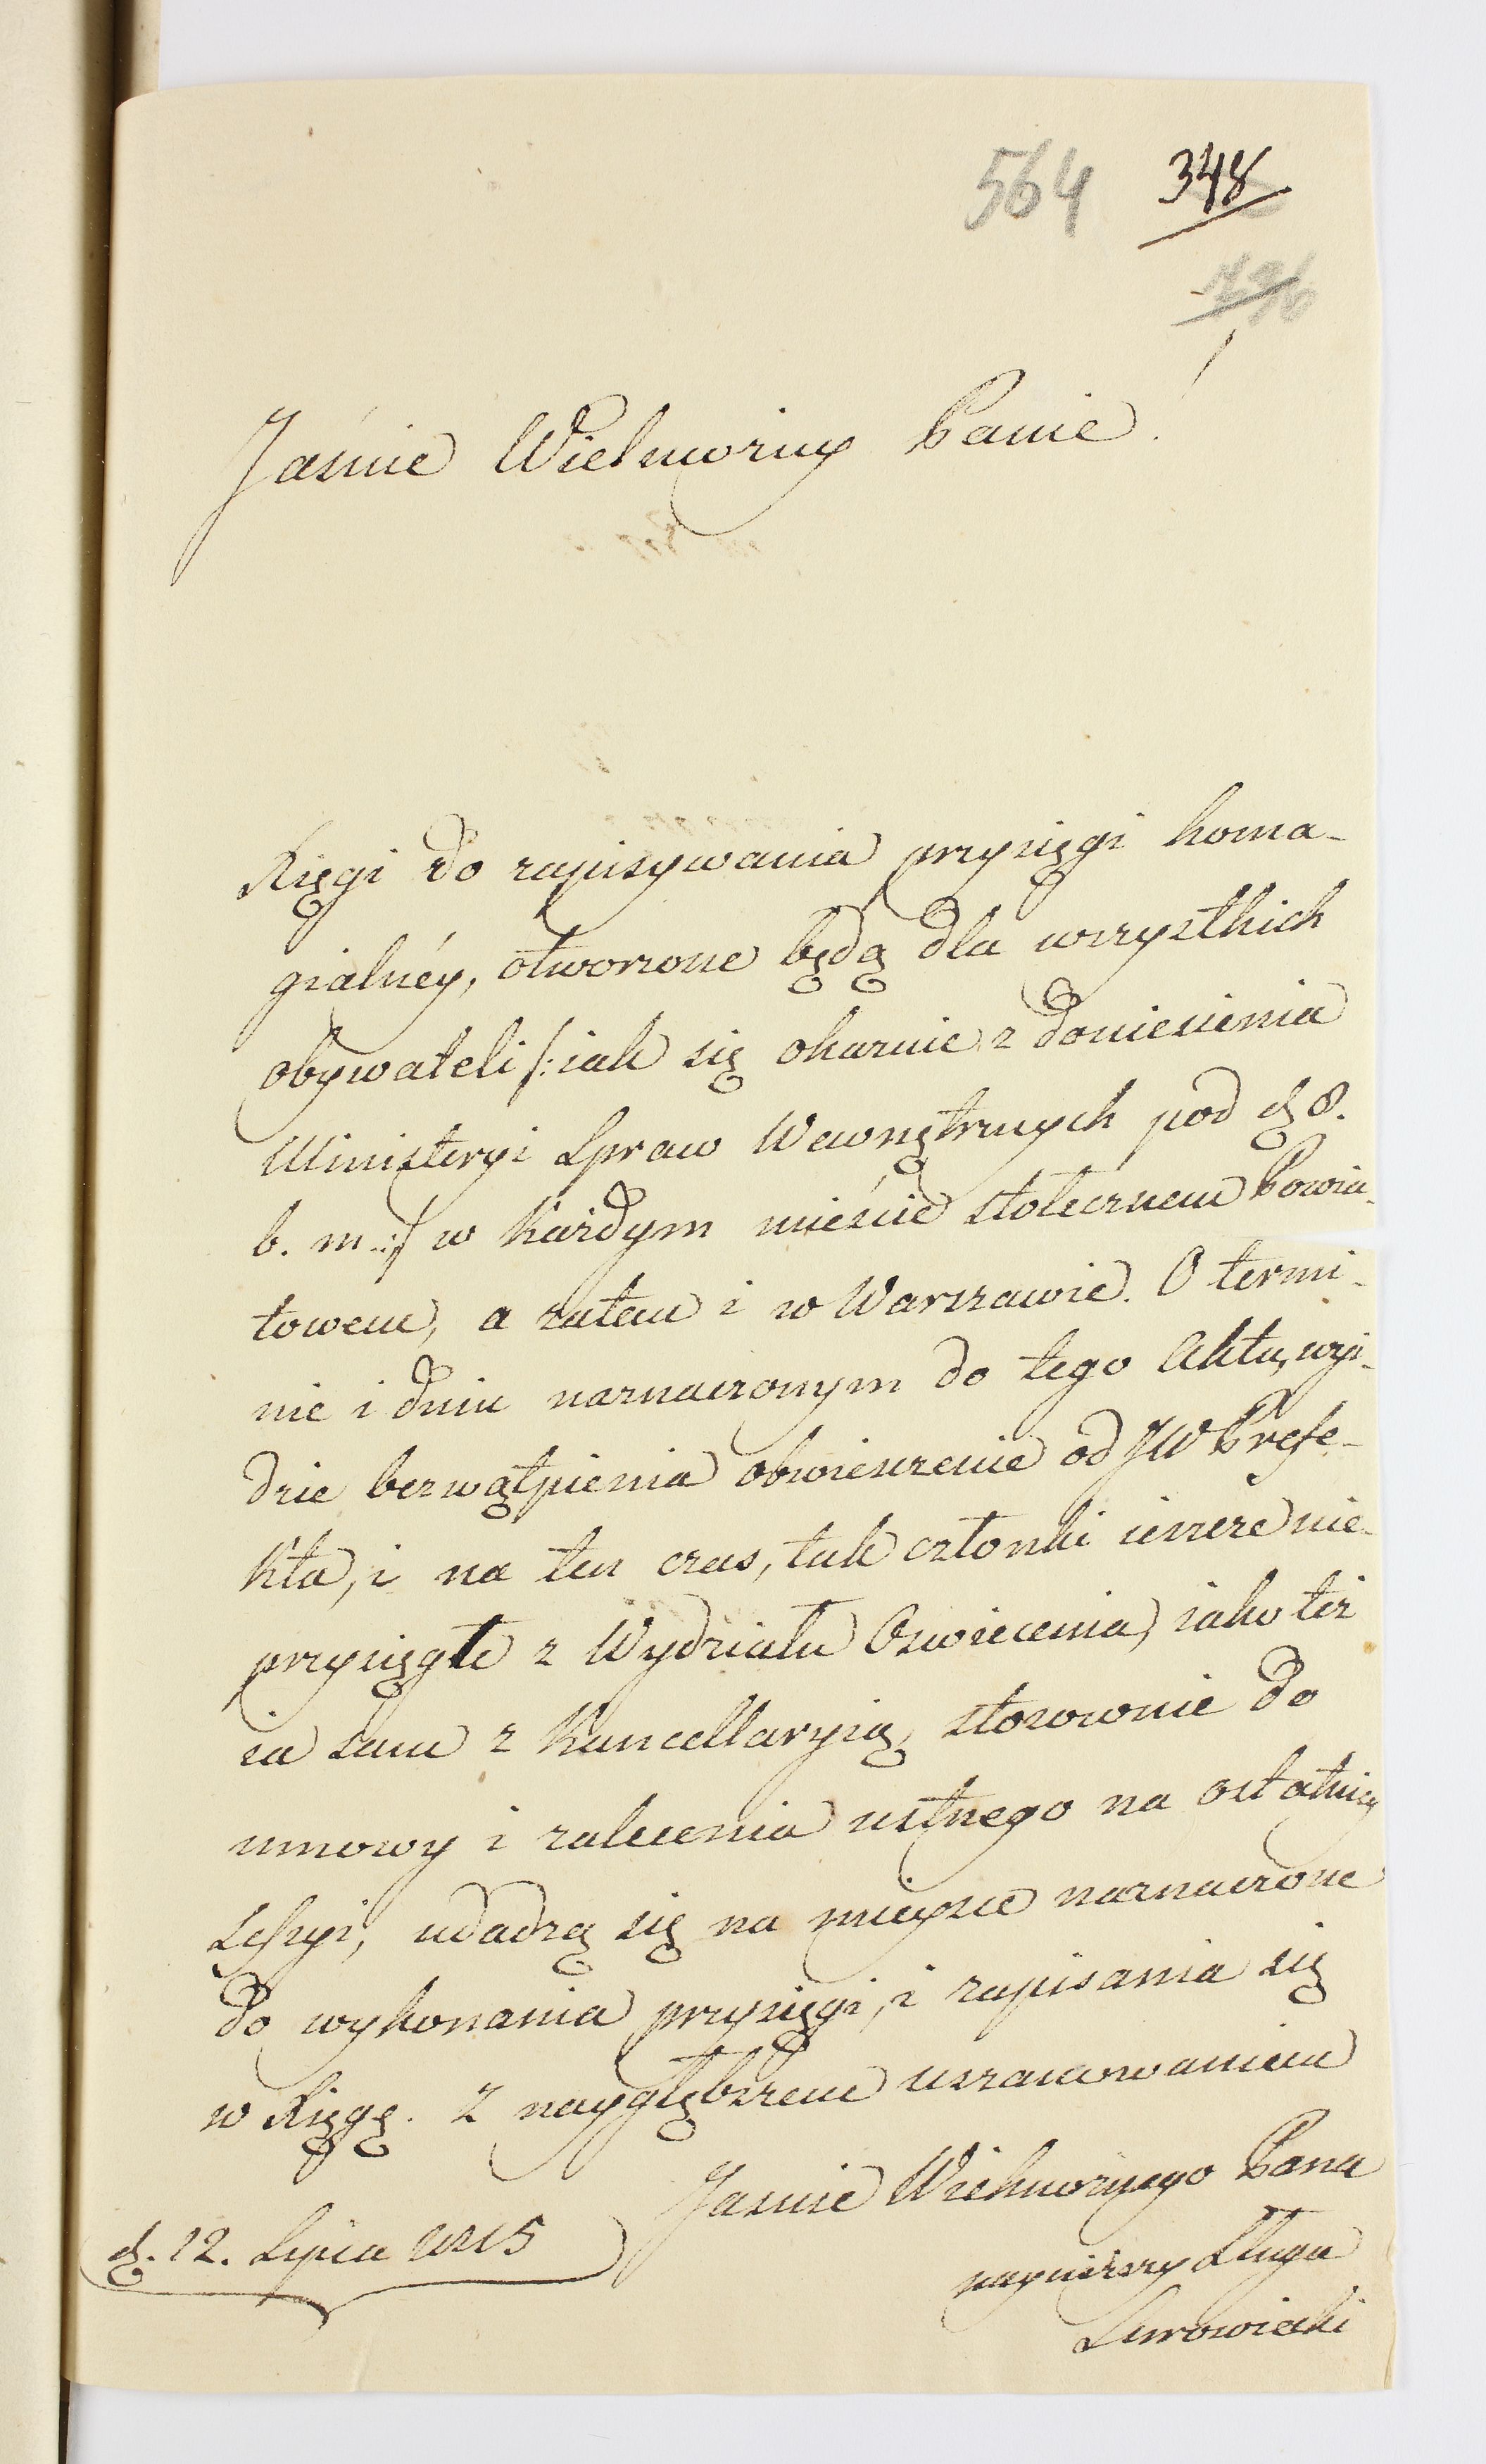 564 348
Jaśnie Wielmożny Panie!
Xięgi do zapisywania przysięgi homa-
gialnéy, otworzone będą dla wszystkich
obywateli /: iak się okaznie z doniesienia
Ministeryi Spraw Wewnętrznych pod d. 8.
b. m. :/ w każdym mieście stołecznem Powia-
towem, a zatem i w Warszawie. O termi-
nie i dniu naznaczonym do tego Aktu, wyi-
dzie bezwątpienia obwieszczenie od JW Prefe-
kta, i na ten czas, tak członki ieszcze nie-
przysięgłe z Wydziału Oswiecenia, iako też
ia sam z Kancellaryią, stosownie do
umowy i zalecenia ustnego na ostatniey
Sessyi, udadzą się na mieysce naznaczone
do wykonania przysięgi, i zapisania się
w Xięgę. Z naygłębszem uszanowaniem
Jaśnie Wielmożnego Pana
d. 12. Lipca 1815
nayniższy Sługa
Surowiecki